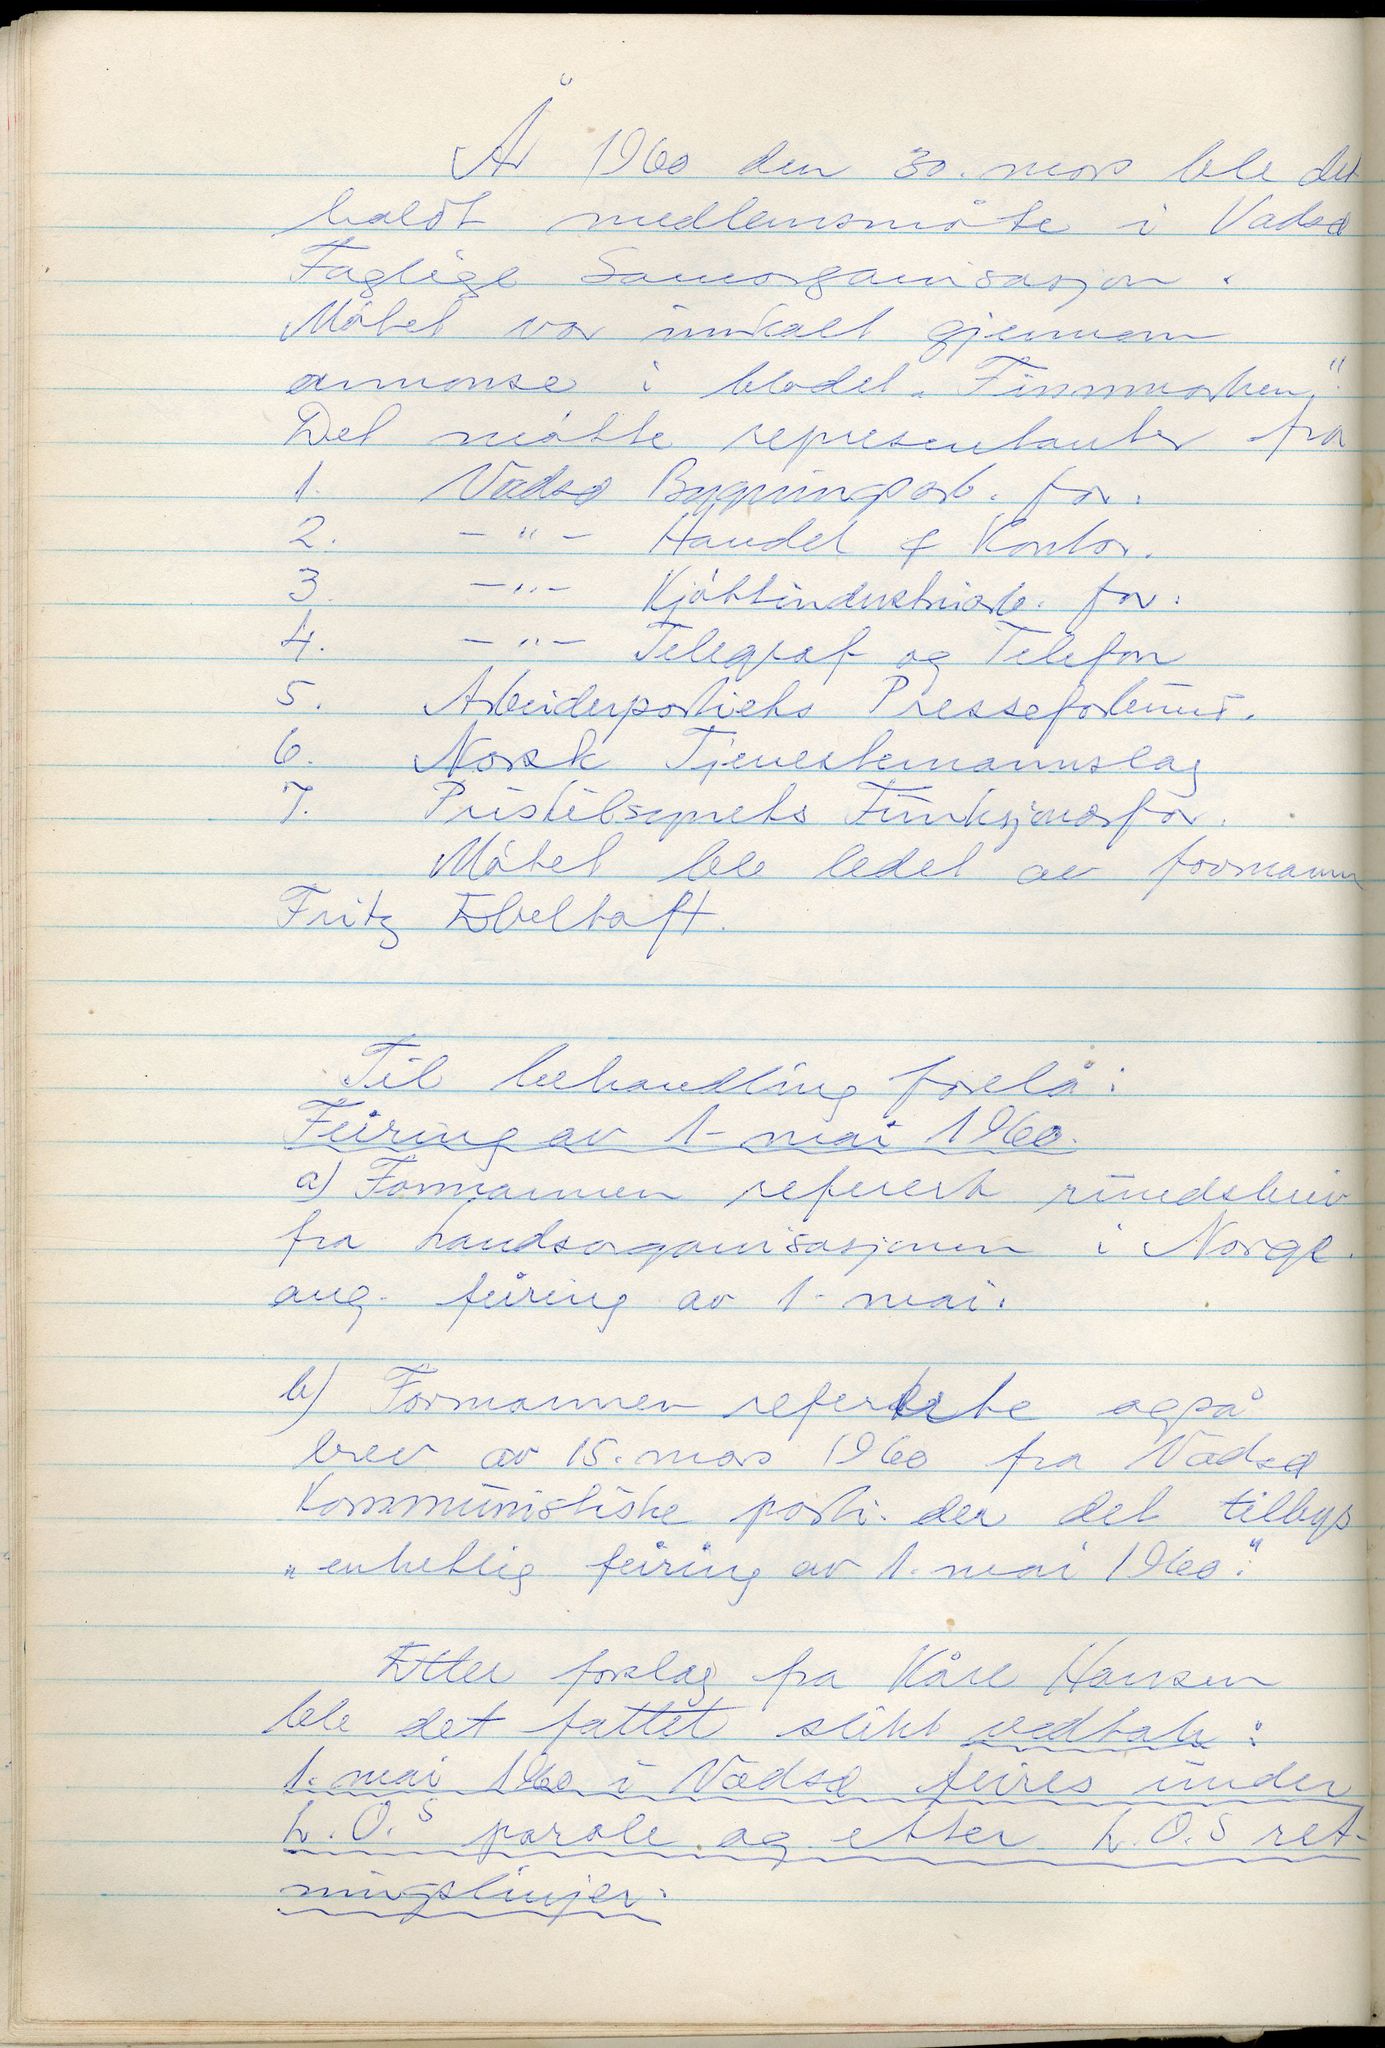 År 1960 den 30. mars ble det
haldt medlemsmöte i Vadsö
Faglige Samorganisasjon.
Mötet var innkalt gjennom
annonse i bladet „Finnmarken."
Det mötte representanter fra
1. Vadsö Bygningsarb. for.
2. -"- Handel & Kontor.
3. -"- Kjöttindustriarb. for.
4. -"- Telegraf og Telefon
5. Arbeiderpartiets Presseforbund.
6. Norsk Tjenestemannslag
7. Pristilsynets Funksjonærfor.
Mötet ble ledet av formann
Fritz Ebeltoft.
Til behandling forelå:
Feiring av 1. mai 1960.
a) Formannen refererte rundskriv
fra Landsorganisasjonen i Norge
ang. feiring av 1. mai.
b) Formannen refererte også
brev av 15. mars 1960 fra Vadsö
Kommunistiske parti. der det tilbys
„enhetlig feiring av 1. mai 1960."
Etter forslag fra Kåre Hansen
ble det fattet slikt vedtak:
1. mai 1960 i Vadsö feires under
L.O.s parole og etter L.O.s ret-
ningslinjer.